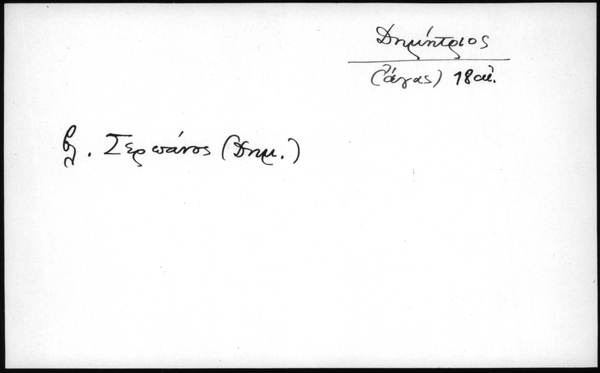 Δημήτριος
(ἀγᾶς) 18 αἰ.
βλ. Σερπάνος (Δημ.)